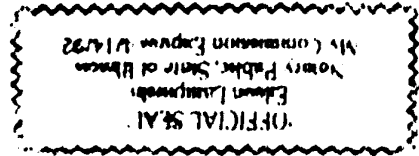 "OFFICIAL SEAL"
Edwin
Notary Public, State of Illinois
My Commission Expires 4/14/92